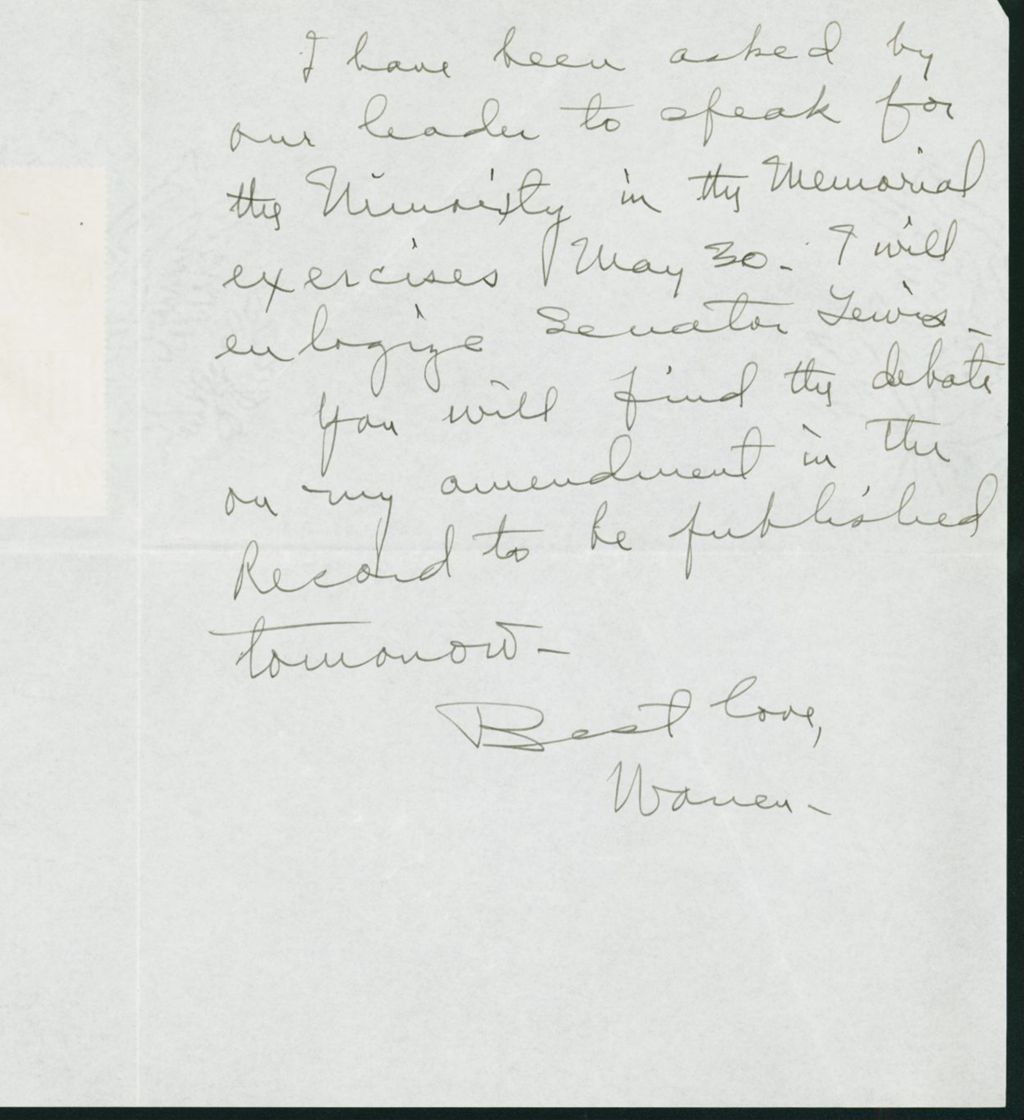 I have been asked by
our leader to speak for
the Minority in the Memorial
exercises May 30 - I will
eulogize Senator Lewis -
You will find the debate
on my amendment in the
Record to be published
tomorrow -
Best love,
Warren -